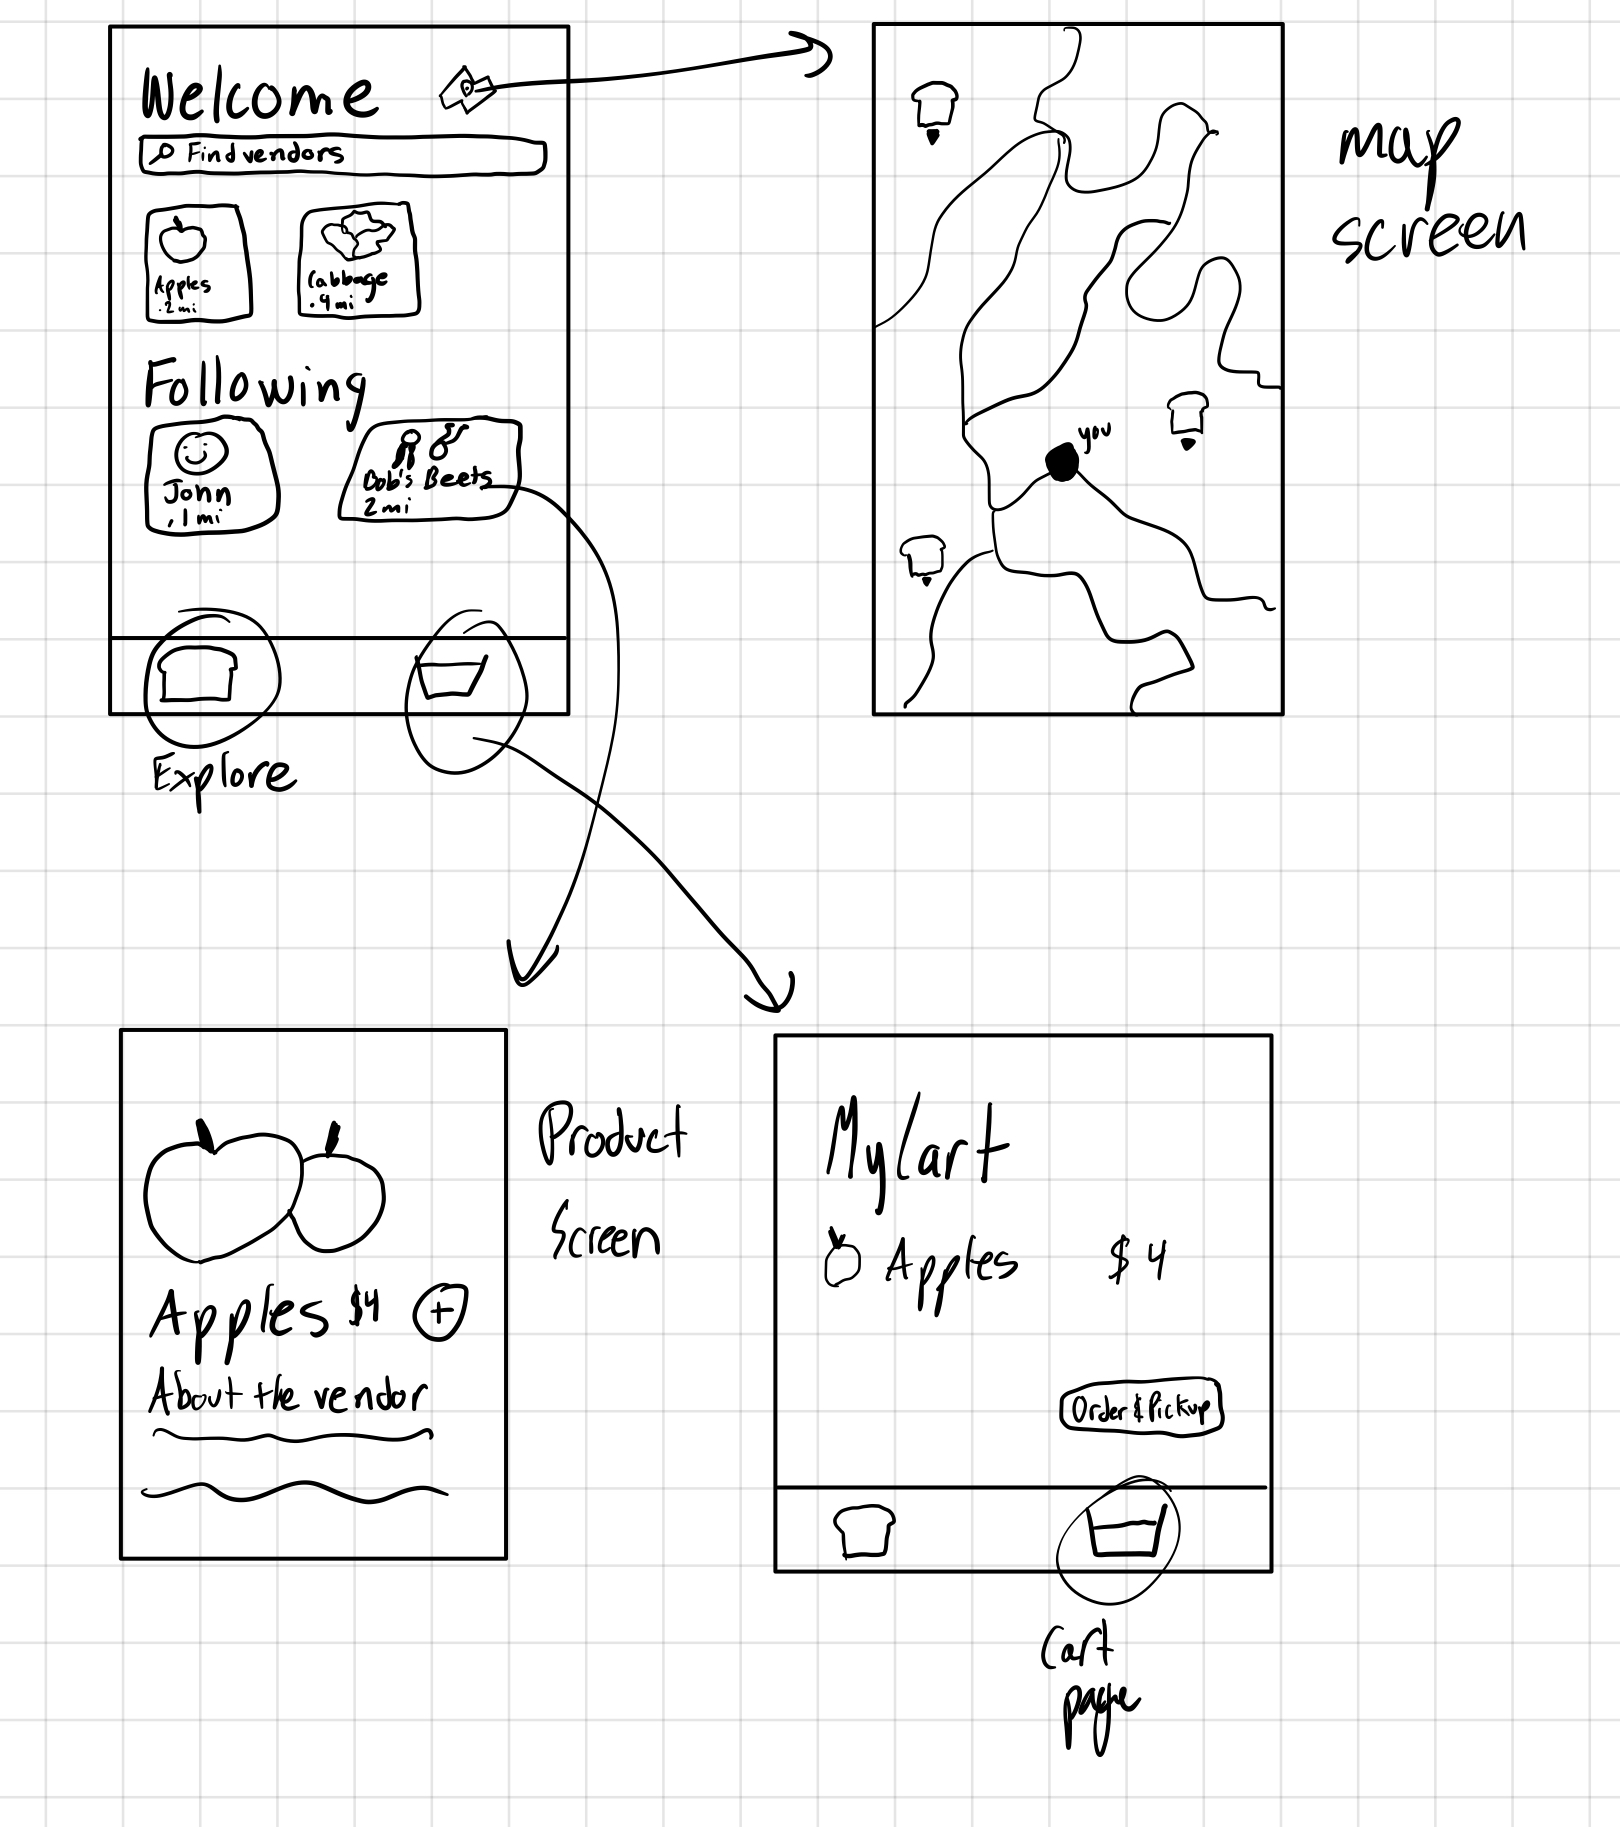 Welcome
Find vendors
Apples
.2 mi
Cabbage
.4 mi
Following
John
.1 mi
Bob's Beets
2 mi
Explore
you
map
screen
Apples $4 +
About the vendor
Product
Screen
My Cart
Apples $4
Order & Pickup
Cart
page